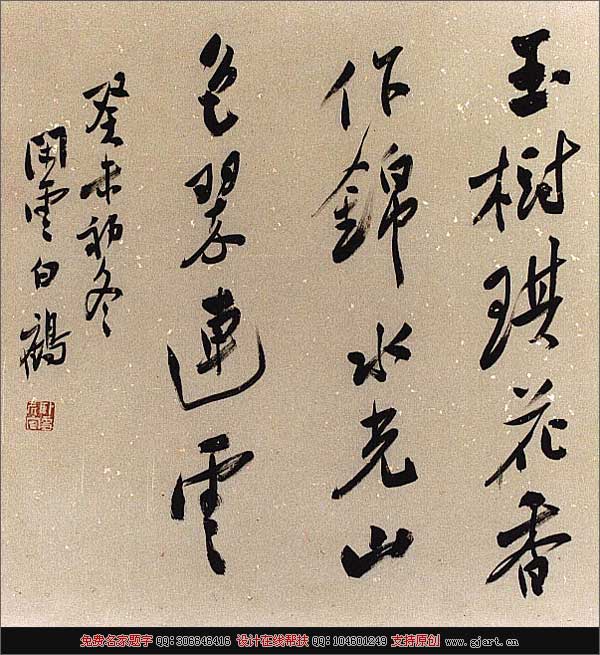 玉樹琪花香
作錦水光山
色翠連雲
癸未初冬
閑雲白鶴
免费名家题字 QQ:306646416 设计在线帮扶 QQ:104601249 支持原创 www.gjart.cn